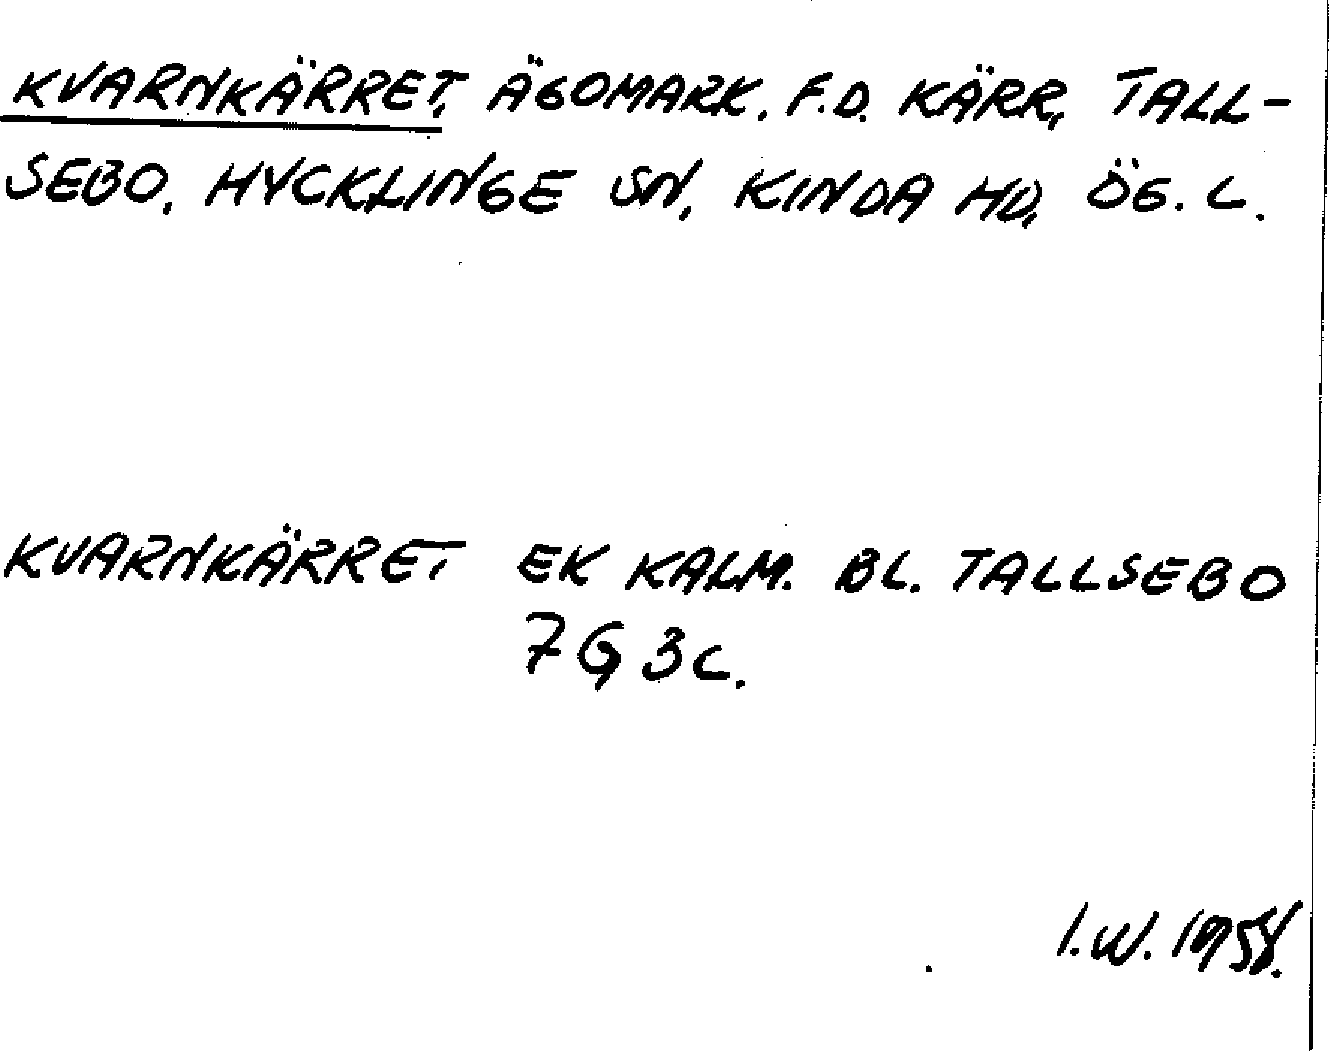 KVARNKÄRRET, ÄGOMARK, F.D. KÄRR, TALL-
SEBO, HYCKLINGE SN, KINDA HD, ÖG. L.
KVARNKÄRRET EK KALM. BL. TALLSEBO
7G 3c.
I.W. 1958.